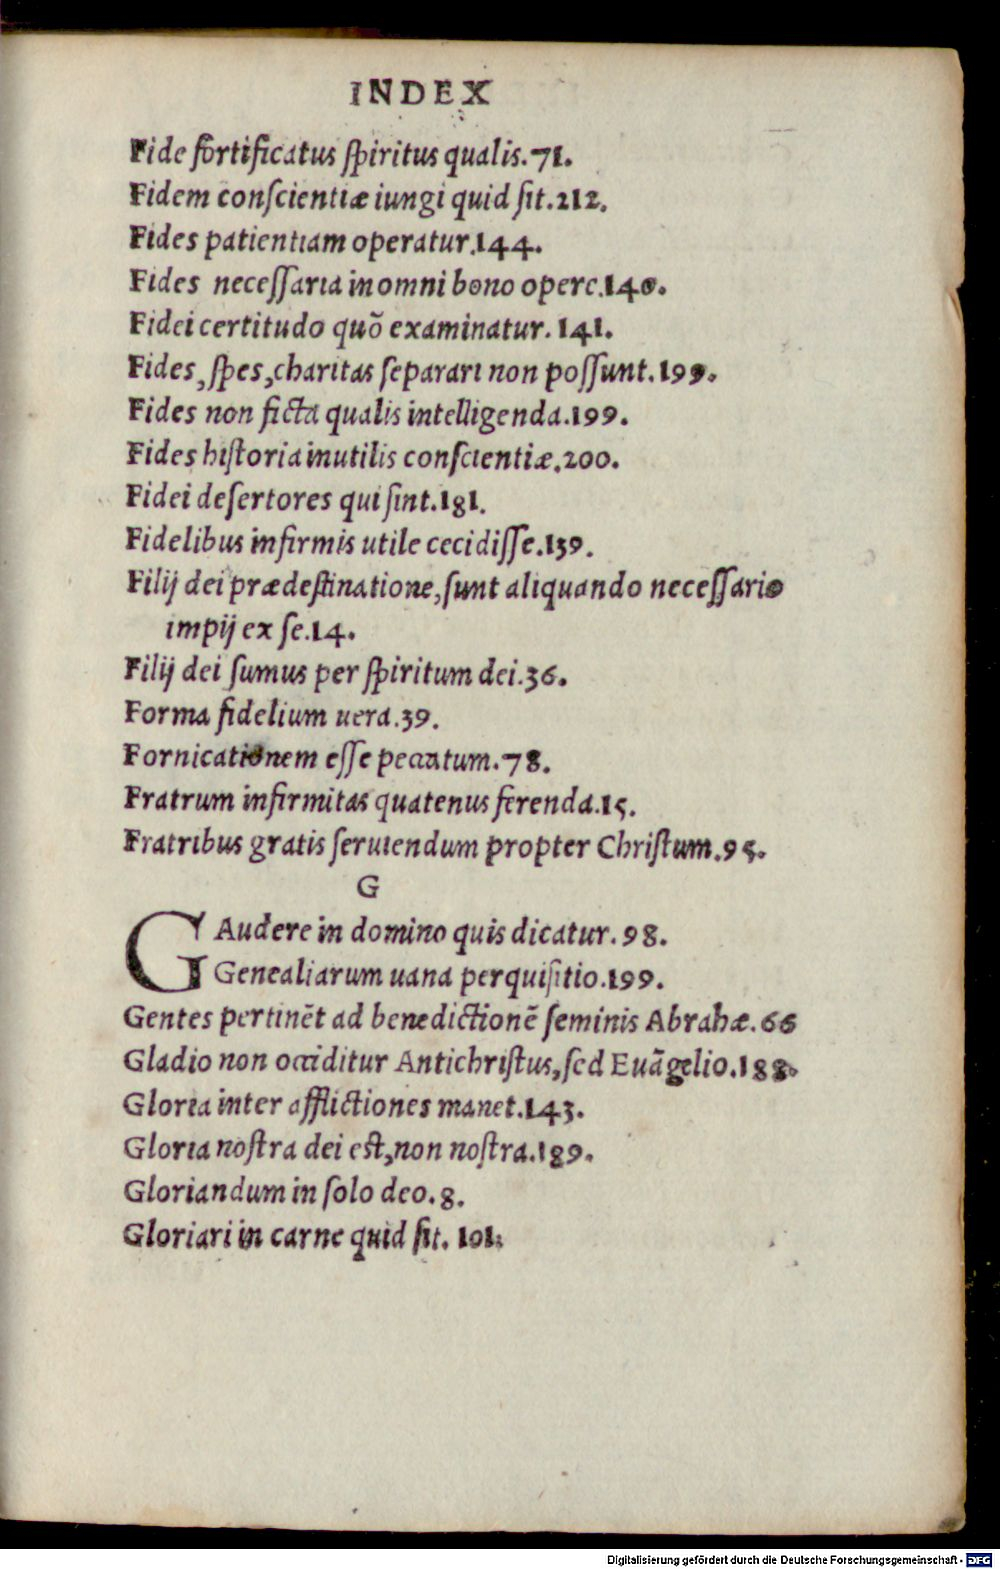 INDEX
Fide fortificatus ſpiritus qualis.71.
Fidem conſcientiæ iungi quid ſit.212.
Fides patientiam operatur.144.
Fides neceſſaria in omni bono opere.140.
Fidei certitudo quõ examinatur. 141.
Fides, ſpes, charitas ſeparari non poſſunt.199.
Fides non ficta qualis intelligenda.199.
Fides hiſtoria inutilis conſcientiæ.200.
Fidei deſertores qui ſint.181.
Fidelibus infirmis utile cecidiſſe.139.
Filij dei prædeſtinatione, ſunt aliquando neceſſario
impij ex ſe.14.
Filij dei ſumus per ſpiritum dei.36.
Forma fidelium uera.39.
Fornicationem eſſe peccatum.78.
Fratrum infirmitas quatenus ferenda.15.
Fratribus gratis ſeruiendum propter Chriſtum.95.
G
GAudere in domino quis dicatur. 98.
Genealiarum uana perquiſitio.199.
Gentes pertinẽt ad benedictionẽ ſeminis Abrahæ.66
Gladio non occiditur Antichriſtus, ſed Euãgelio.188.
Gloria inter afflictiones manet.143.
Gloria noſtra dei eſt, non noſtra.189.
Gloriandum in ſolo deo.8.
Gloriari in carne quid ſit. 101.
Digitalisierung gefördert durch die Deutsche Forschungsgemeinschaft - DFG